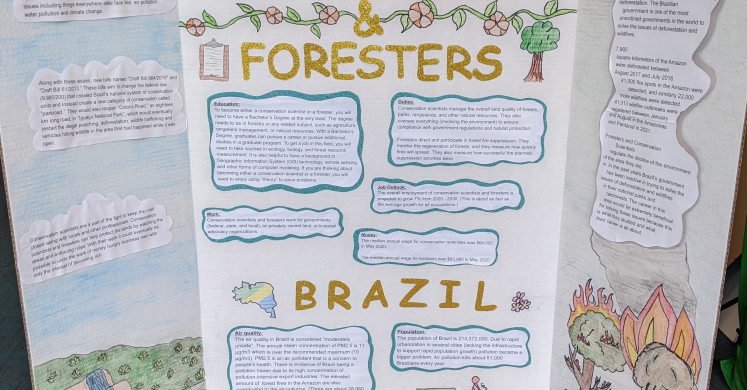 issues including things everywhere alike face like, air pollution,
water pollution and climate change.
Along with these issues, new bills named "Draft Bill 984/2019" and
"Draft Bill 61/2013." These bills aim to change the federal law
(9,985/200) that created Brazil's national system of conservation
units and instead create a new category of conservation called
"parkroad." They would also reopen "Colono Road", an eighteen
km long road in "Iguaçu National Park", which would eventually
restart the illegal poaching, deforestation, wildlife trafficking and
vehicles killing wildlife in the area that had happened while it was
open.
Conservation scientists are a part of the fight to keep the road
closed along with locals and other professionals. Conservation
scientists and foresters can help protect the area by watching the
areas and enforcing rules. With their work it could eventually be
possible to undo the work of money hungry business men with
only the interest of becoming rich.
&
FORESTERS
Education:
To become either a conservation scientist or a forester, you will
need to have a Bachelor's Degree at the very least. The degree
needs to be in forestry or any related subject, such as agriculture,
rangeland management, or natural resources. With a Bachelor's
Degree, graduates can pursue a career or pursue additional
studies in a graduate program. To get a job in this field, you will
need to take courses in ecology, biology, and forest resource
measurement. It is also helpful to have a background in
Geographic Information System (GIS) technology, remote sensing
and other forms of computer modeling. If you are thinking about
becoming either a conservation scientist or a forester, you will
need to enjoy using "theory" to solve problems.
Duties:
Conservation scientists manage the overall land quality of forests,
parks, rangelands, and other natural resources. They also
oversee everything (involving the environment) to ensure
compliance with government regulations and habitat protection.
Foresters direct and participate in forest fire suppression. They
monitor the regeneration of forests, and they measure how quickly
fires will spread. They also measure how successful the planned
suppression activities were.
Job Outlook:
The overall employment of conservation scientists and foresters is
projected to grow 7% from 2020 - 2030. (This is about as fast as
the average growth for all occupations.)
Work:
Conservation scientists and foresters work for governments
(federal, state, and local), on privately owned land, or in social
advocacy organizations.
Money:
The median annual wage for conservation scientists was $64,020
in May 2020.
The median annual wage for foresters was $63,980 in May 2020.
BRAZIL
Air quality:
The air quality in Brazil is considered "moderately
unsafe". The annual mean concentration of PM2.5 is 13
µg/m3 which is over the recommended maximum (10
µg/m3). PM2.5 is an air pollutant that is a concern to
people's health. There is evidence of Brazil being a
pollution haven due to its high concentration of
pollution-intensive export industries. The elevated
amount of forest fires in the Amazon are also
Population:
The population of Brazil is 213,372,000. Due to rapid
urbanization in several cities (lacking the infrastructure
to support rapid population growth) pollution became a
bigger problem. Air pollution kills about 51,000
Brazilians every year.
deforestation. The Brazilian
government is one of the most
uninclined governments in the world to
solve the issues of deforestation and
wildfires.
7,900
square kilometers of the Amazon
were deforested between
August 2017 and July 2018.
41,000 fire spots in the Amazon were
detected, and similarly 22,000
more wildfires were detected.
41,013 wildfire outbreaks were
registered between January
and August in the Amazonas
and Pantanal in 2021.
Foresters and Conservation
Scientists
regulate the decline of the environment
of the area they are
in. In the past years Brazil's government
has been inactive in trying to solve the
issues of deforestation and wildfires
in their national parks and
rainforests. The career in this
area would be extremely crucial
for solving these issues because that
is what they must do and what
their career is all about.